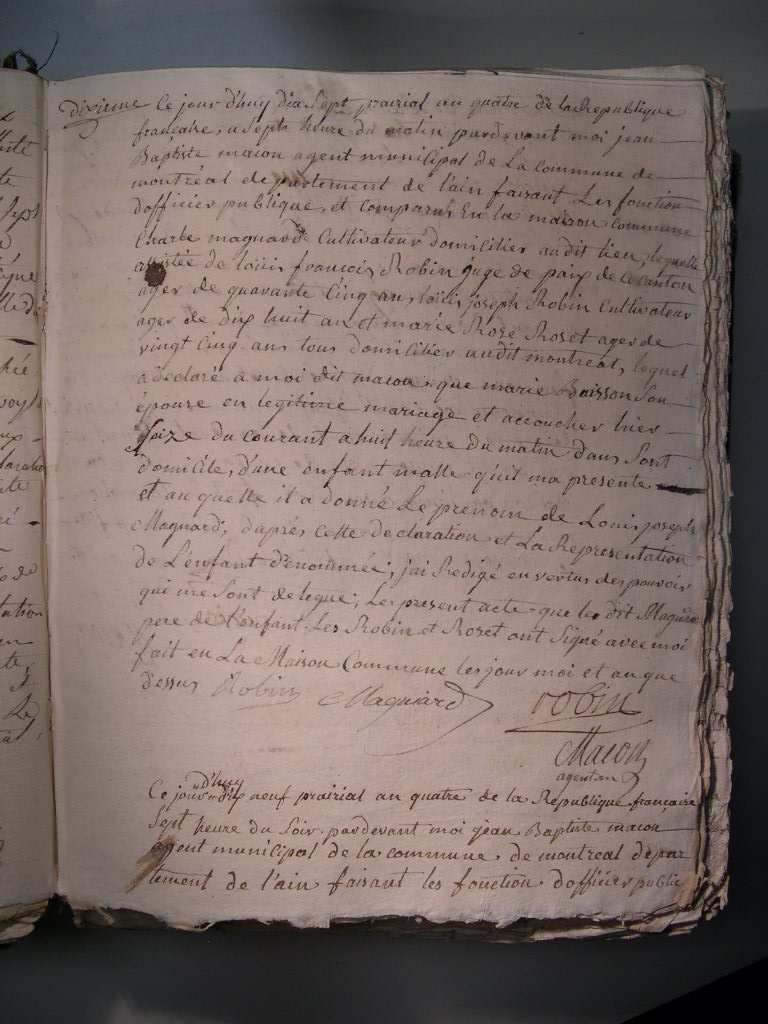 dixieme Ce jour d'huy dix Sept prairial an quatre de la Republique
françaîse, a Septs heure du matin pardevant moi jean
Baptiste macon agent municipal de La Commune de
montréal departement de l'ain faisant Les fonction
d'officier publique, et comparus En la maison commune
Charle magnard Cultivateur domicilier audit lieu, lequelle
assistée de loüis françois Robin juge de paix de ce Canton
ager de quarante Cinq an, loüis joseph Robin Cultivateur
ager de dix huit an et marie Rose Roset ager de
vingt Cinq ans tous domicilier audit montreal, lequel
a declaré a moi dit macon que marie Buisson Son
épouse en legitime mariage et accoucher hier
Seize du courant a huit heure du matin dans Sont
domicile, d'une enfant malle qu'il ma presente
et au quelle il a donné Le prenom de Louis joseph
Magnard, d'aprés cette declaration et La Representation
de L'enfant d'enommée; j'ai Redigé en vertus des pouvoir
qui me Sont delegue; Les present acte que les dit Magnard
pere de l'enfant. Les Robin et Roset ont Signé avec moi
fait en La Maison Commune les jour moi et an que
dessus Robin Magniard robin
Macon
agent m
d'huy
Ce jour dix neuf prairial an quatre de la Republique françaîse
Sept heure du Soir pardevant moi jean Baptiste macon
agent municipal de la commune de montreal depar
tement de l'ain faisant les fonction d'officier public